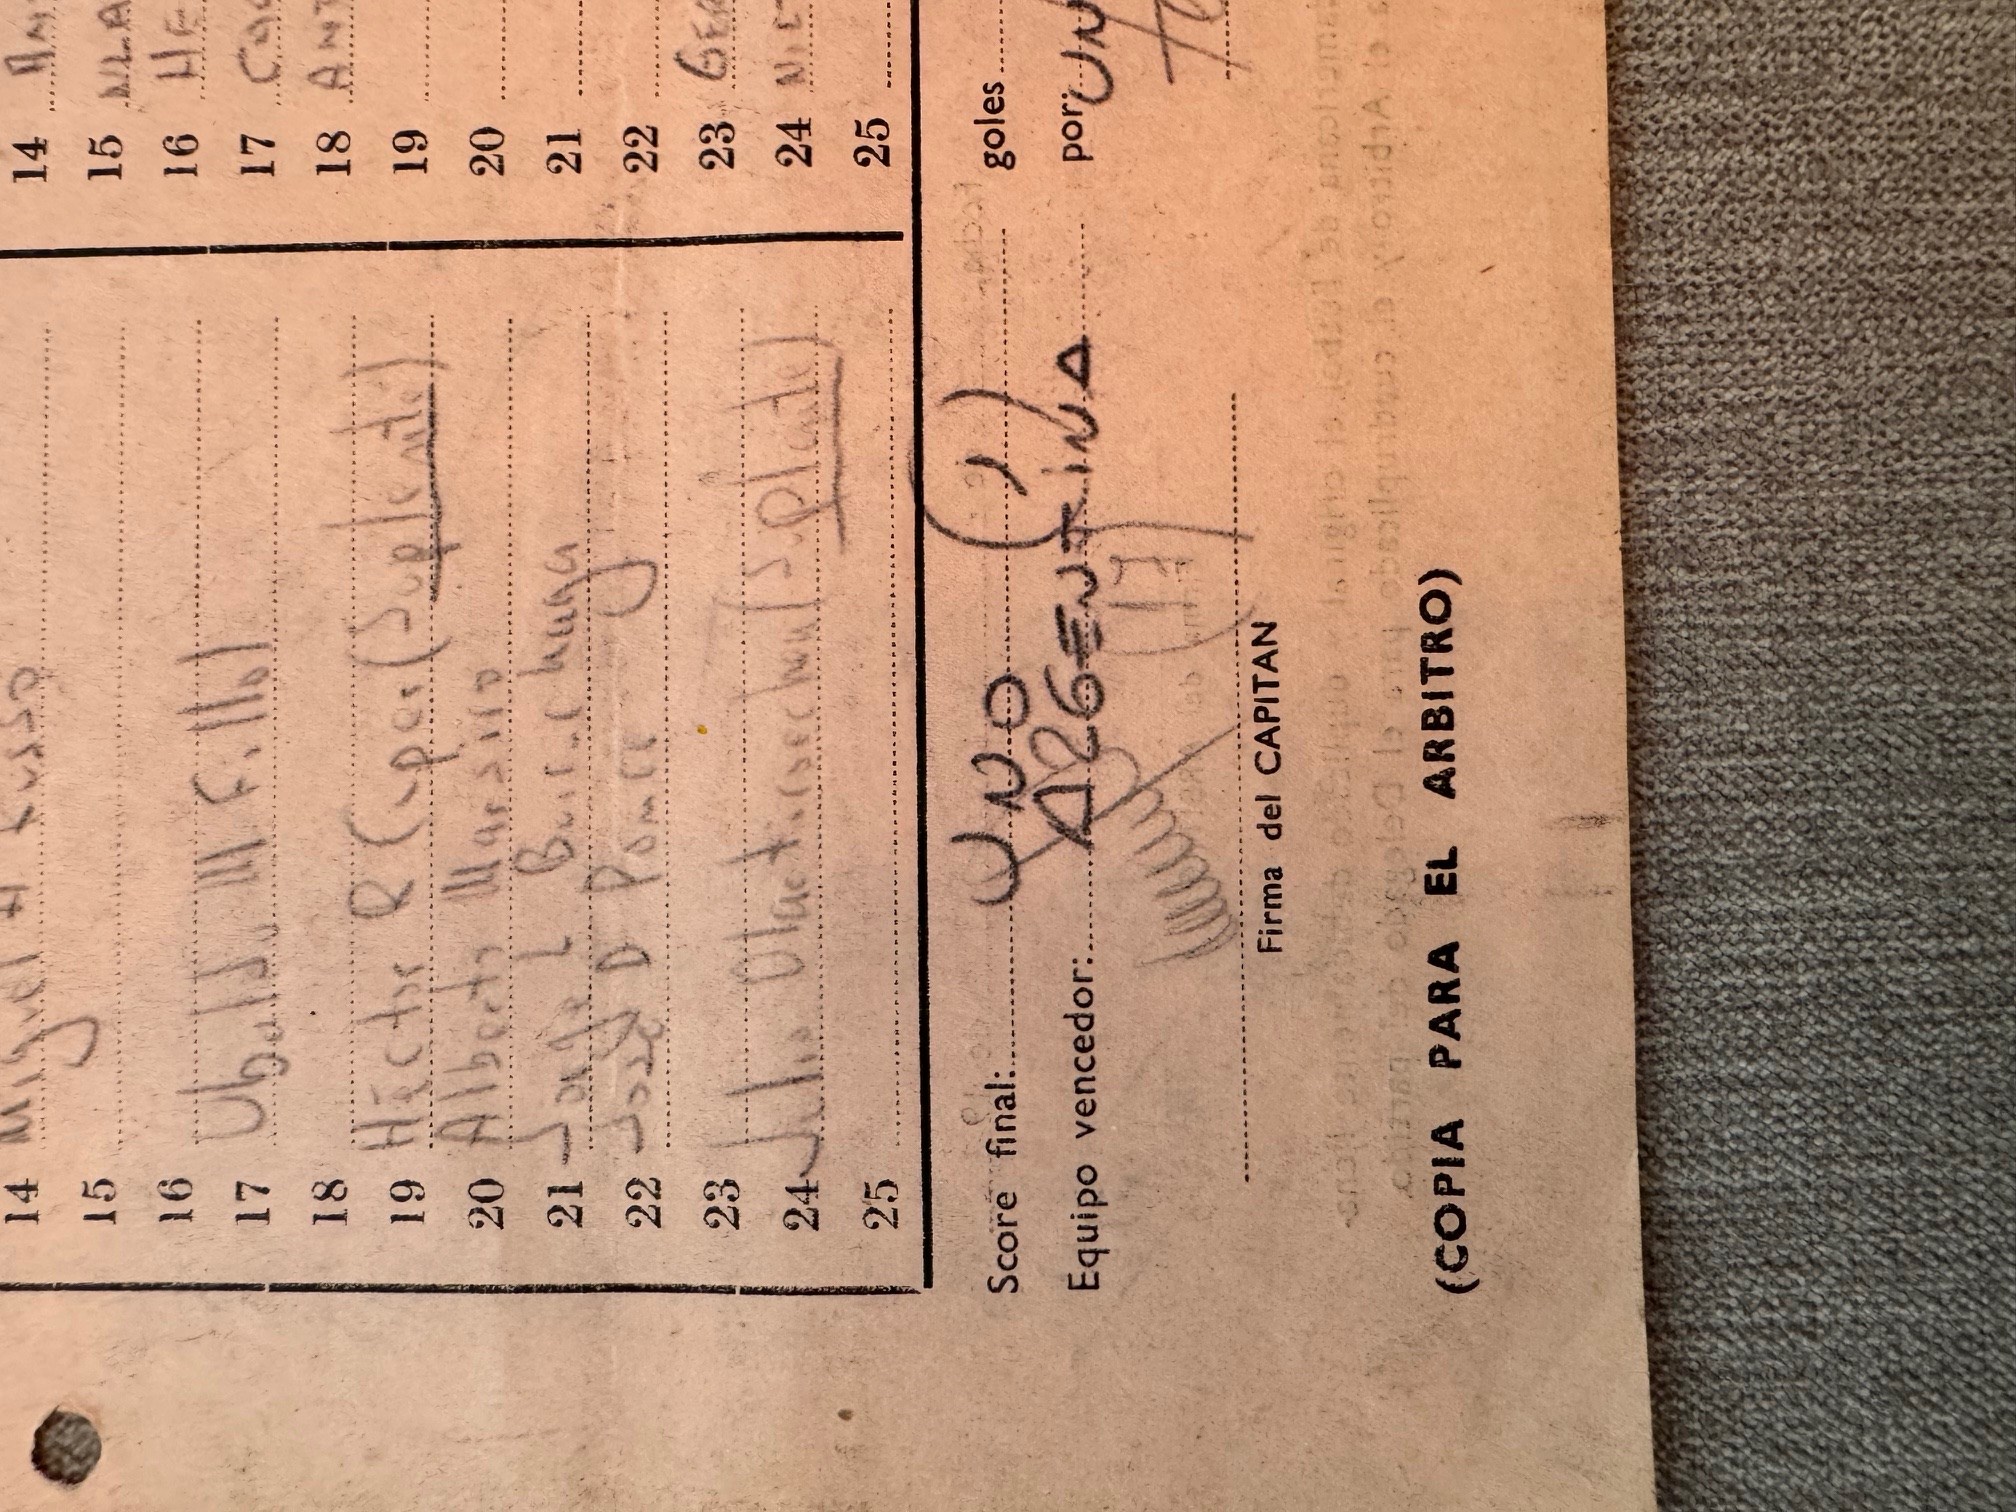 14 Miguel A Russo
15
16
17 Ubaldo M Fillol
18
19 Hector R Cuper (Suplente)
20 Alberto Marsico
21 Jorge L Burruchaga
22 Jose D Ponce
23
24 Julio Olarticoechea (Suplente)
25
14
15
16
17
18 ANT
19
20
21
22
23 GER
24 NIET
25
Score final: UNO (1) goles
Equipo vencedor: ARGENTINA por: UN
Firma del CAPITAN
(COPIA PARA EL ARBITRO)